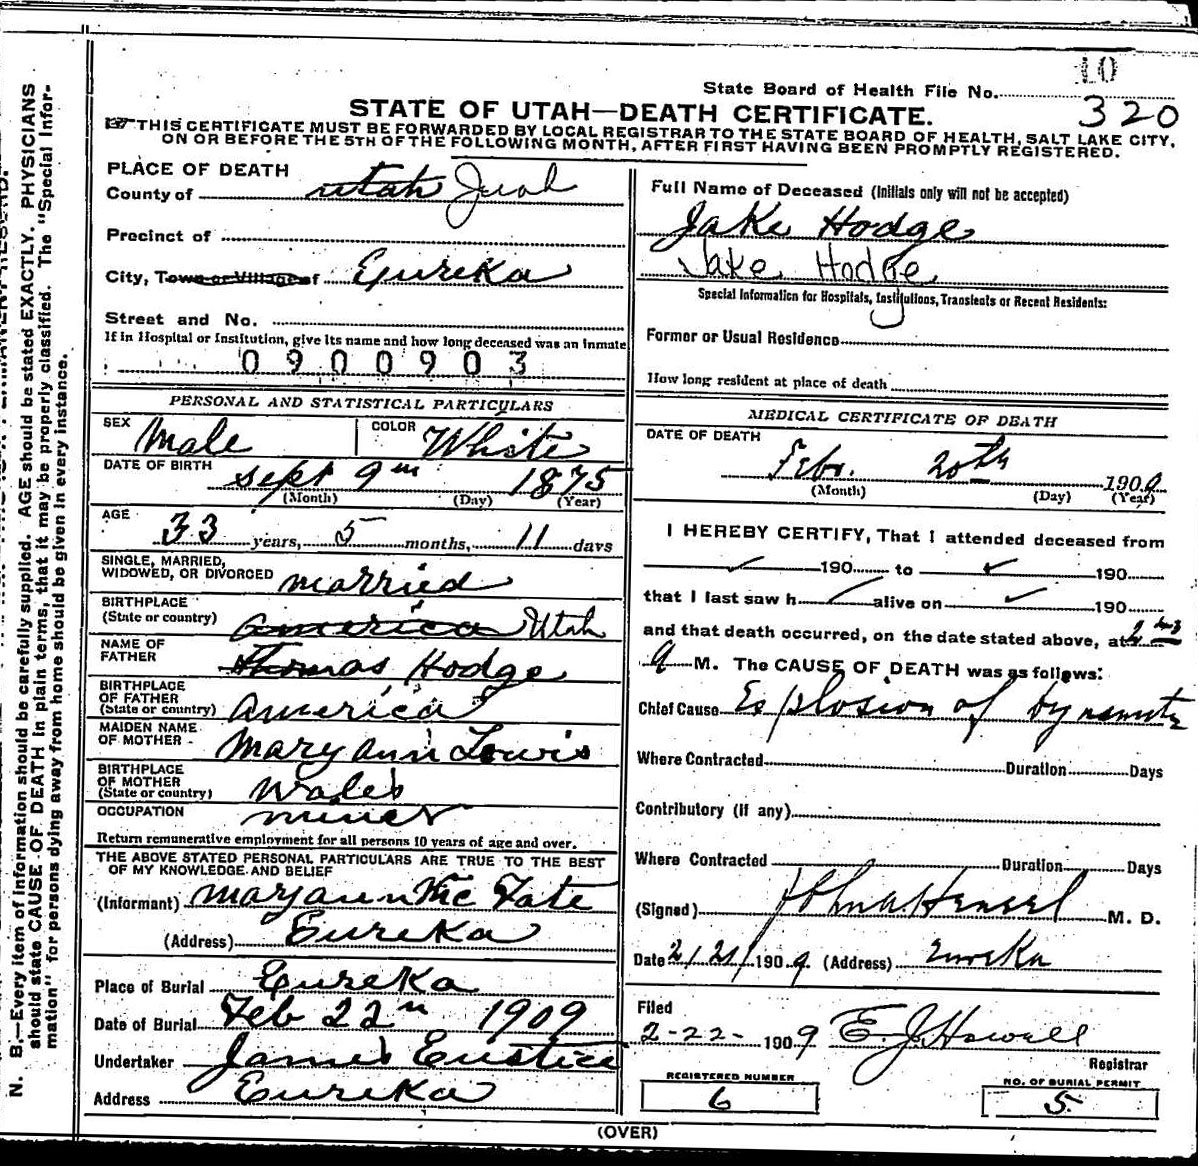 10
State Board of Health File No. 320
STATE OF UTAH—DEATH CERTIFICATE.
THIS CERTIFICATE MUST BE FORWARDED BY LOCAL REGISTRAR TO THE STATE BOARD OF HEALTH, SALT LAKE CITY,
ON OR BEFORE THE 5TH OF THE FOLLOWING MONTH, AFTER FIRST HAVING BEEN PROMPTLY REGISTERED.
PLACE OF DEATH
County of Utah Juab
Precinct of
City, Town or Village of Eureka
Street and No.
If in Hospital or Institution, give its name and how long deceased was an inmate
0900903
PERSONAL AND STATISTICAL PARTICULARS
SEX Male COLOR White
DATE OF BIRTH Sept 9th 1875
(Month) (Day) (Year)
AGE 33 years, 5 months, 11 days
SINGLE, MARRIED,
WIDOWED, OR DIVORCED married
BIRTHPLACE
(State or country) America Utah
NAME OF
FATHER Thomas Hodge
BIRTHPLACE
OF FATHER
(State or country) America
MAIDEN NAME
OF MOTHER Mary Ann Lewis
BIRTHPLACE
OF MOTHER
(State or country) Wales
OCCUPATION miner
Return remunerative employment for all persons 10 years of age and over.
THE ABOVE STATED PERSONAL PARTICULARS ARE TRUE TO THE BEST
OF MY KNOWLEDGE AND BELIEF
(Informant) Maryann Mc Fate
(Address) Eureka
Place of Burial Eureka
Date of Burial Feb 22n 1909
Undertaker James Eustice
Address Eureka
Full Name of Deceased (Initials only will not be accepted)
Jake Hodge
Jake Hodge
Special Information for Hospitals, Institutions, Transients or Recent Residents:
Former or Usual Residence
How long resident at place of death
MEDICAL CERTIFICATE OF DEATH
DATE OF DEATH
Febr. 20th 1909
(Month) (Day) (Year)
I HEREBY CERTIFY, That I attended deceased from
190 to 190
that I last saw h alive on 190
and that death occurred, on the date stated above, at
M. The CAUSE OF DEATH was as follows:
Chief Cause Explosion of Dynamite
Where Contracted Duration Days
Contributory (if any)
Where Contracted Duration Days
(Signed) John A Hensel M. D.
Date 2/21/1909 (Address) Eureka
Filed
2-22- 1909 E. J. Howell
Registrar
REGISTERED NUMBER
6
NO. OF BURIAL PERMIT
5
(OVER)
N. B.—Every item of information should be carefully supplied. AGE should be stated EXACTLY. PHYSICIANS
should state CAUSE OF DEATH in plain terms, that it may be properly classified. The "Special Infor-
mation" for persons dying away from home should be given in every instance.